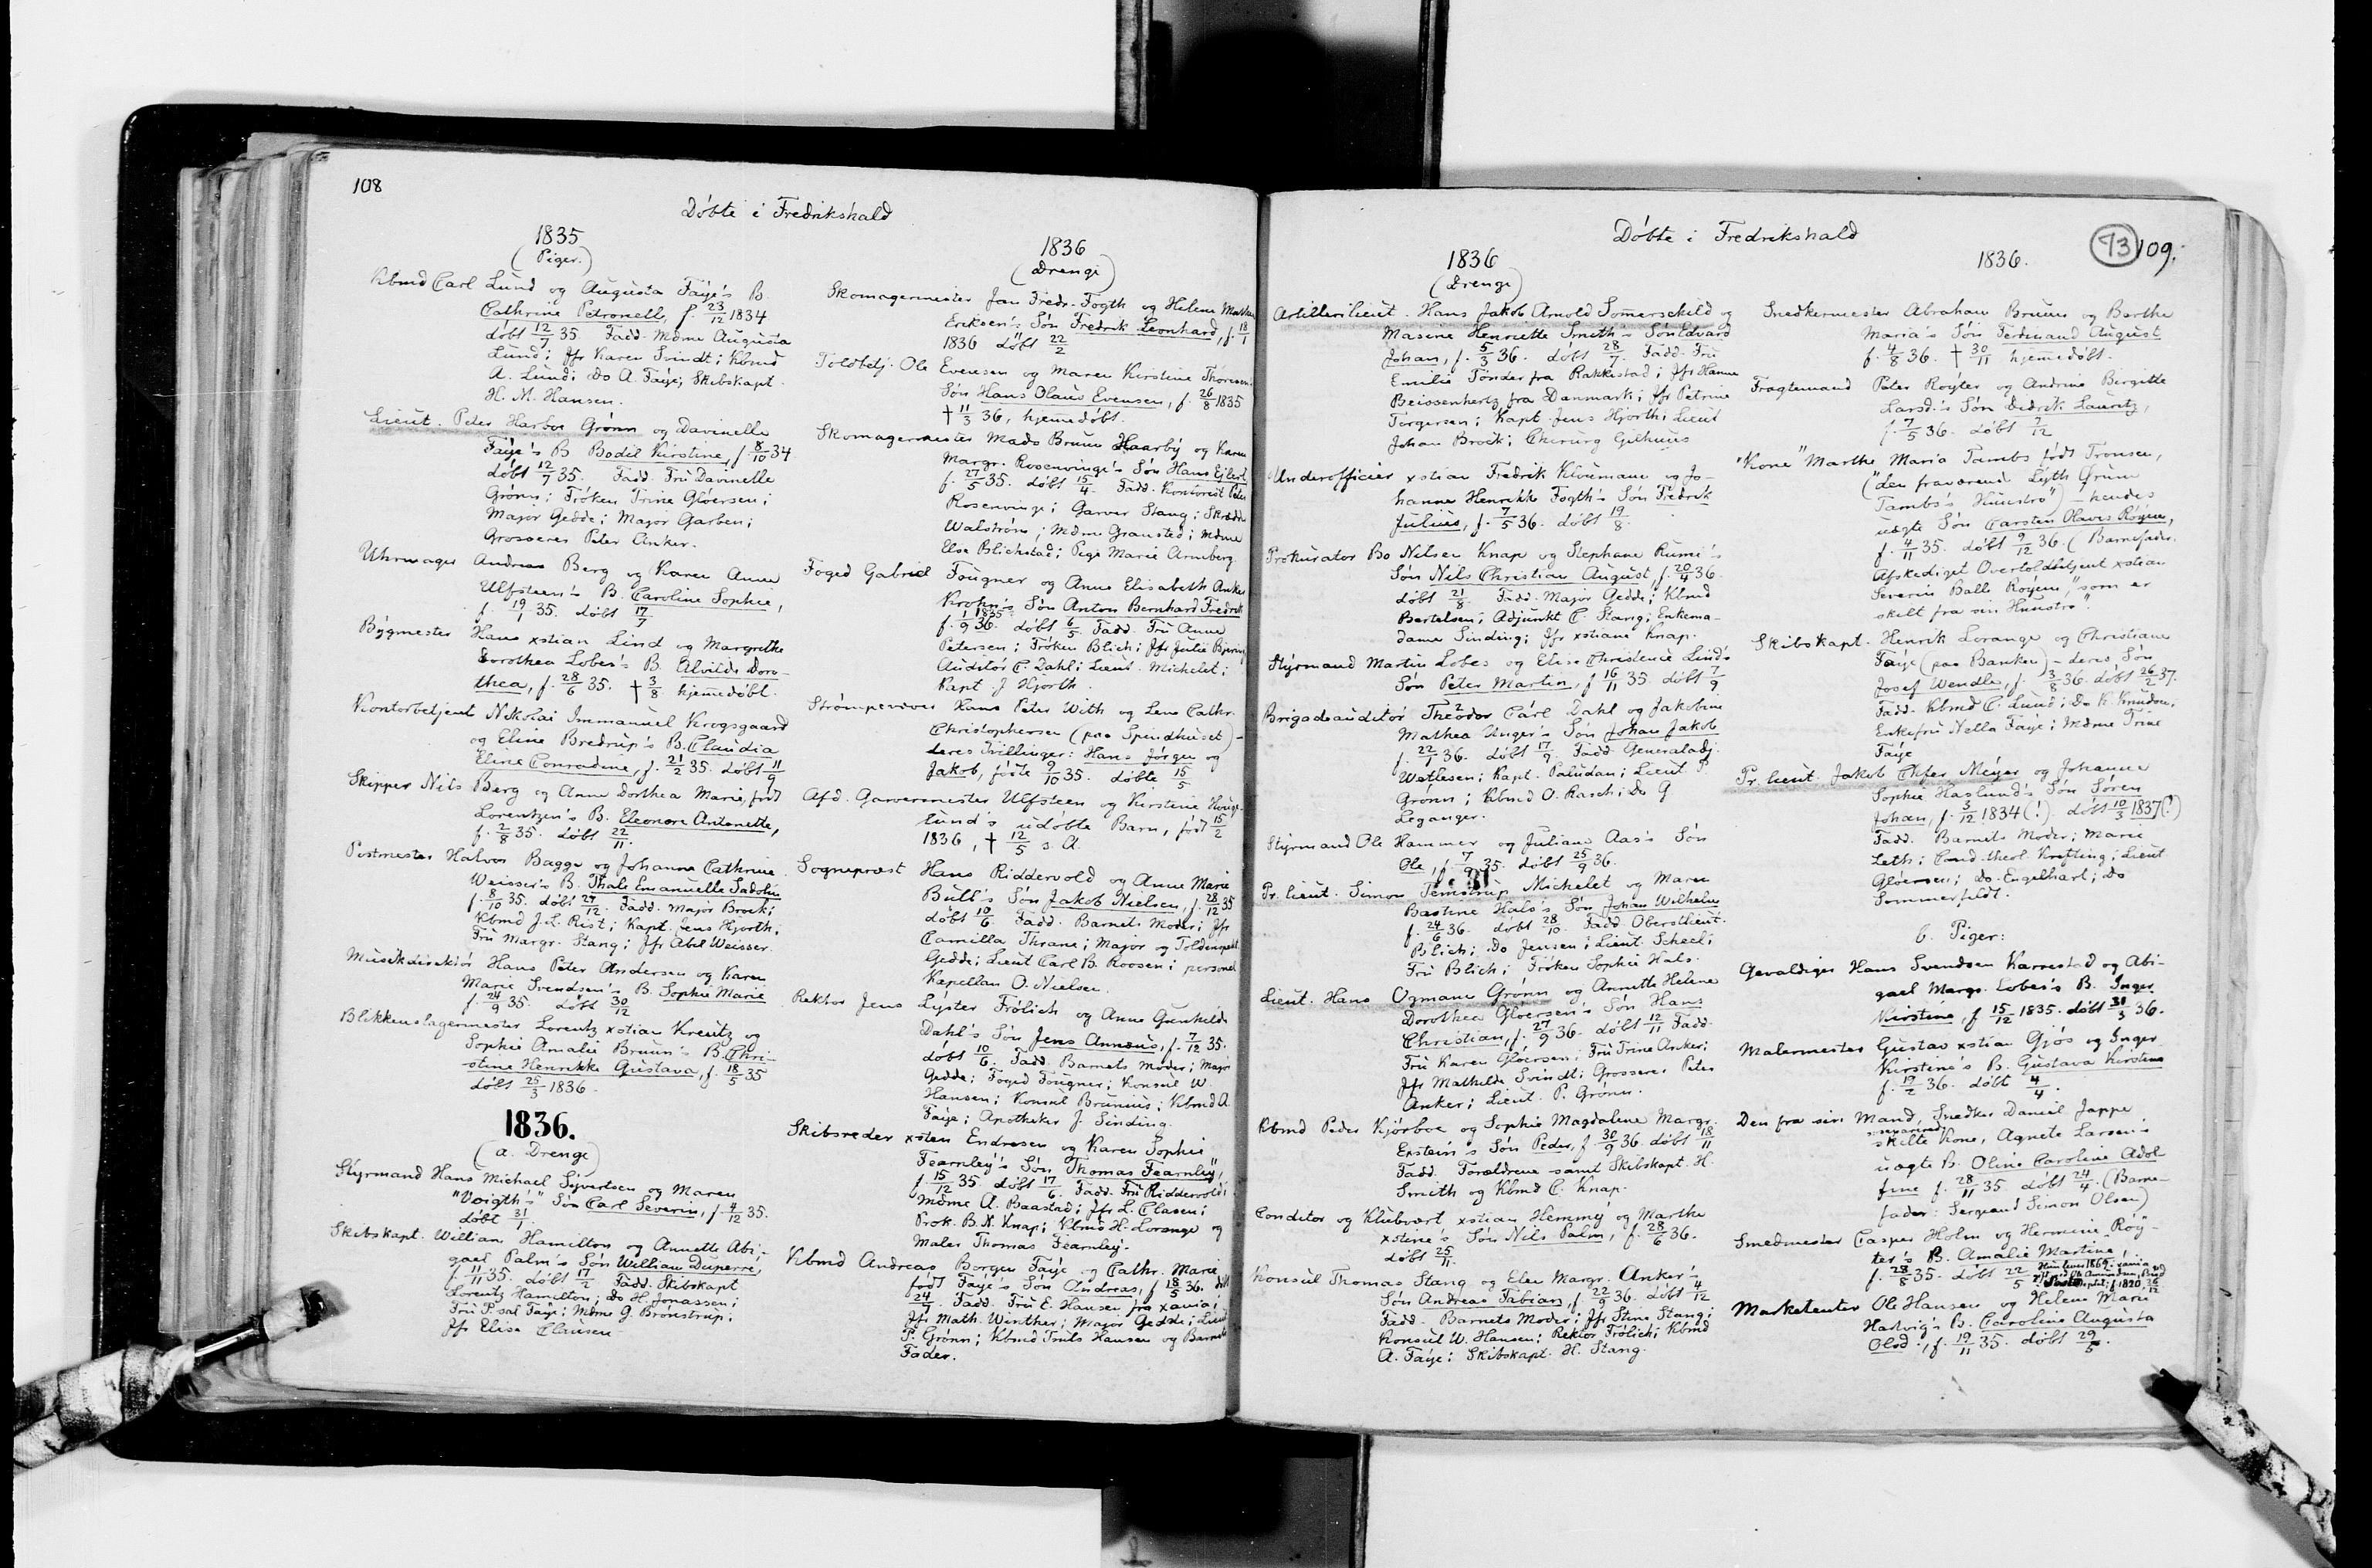 108
Döbte i Fredrikshald
1835
(Piger.)
Kbmd Carl Lund og Augusta Faÿe's B.
Cathrine Petronell, f. 23/12 1834
döbt 12/7 35. Fadd. Mdme Augusta
Lund; Jfr Karen Svindt; Kbmd
A. Lund; Do A. Faÿe; Skibskapt.
H. M. Hansen.
Lieut. Peter Harboe Grönn og Davinelle
Faÿe's B. Bodil Kirstine, f. 8/10 34
döbt 12/7 35. Fadd. Fru Davinelle
Grönn; Fröken Trine Glöersen;
Major Gedde; Major Garben;
Grosserer Peter Anker.
Uhrmager Andreas Berg og Karen Anne
Ulfsteen's B. Caroline Sophie,
f. 19/1 35. döbt 17/7
Bÿgmester Hans xstian Lind og Margrethe
Dorothea Lobes's B. Elvilde Doro-
thea, f. 28/6 35. † 3/8 hjemmedöbt.
Kontorbetjent Nikolai Immanuel Krogsgaard
og Eline Bredrup's B. Claudia
Eline Conradine, f. 21/2 35. döbt 11/9
Skipper Nils Berg og Anne Dorthea Marie, född
Lorentzen's B. Eleonore Antonette,
f. 2/8 35. döbt 22/11.
Postmester Halvor Bagge og Johanne Cathrine
Weisser's B. Thale Emanuelle Sadolin
f. 8/10 35. döbt 27/12. Fadd. Major Brock;
Kbmd J. L. Rist; Kapt. Jens Hjorth;
Fru Margr. Stang; Jfr Abel Weisser.
Musikdirektör Hans Peter Andersen og Karen
Marie Svendsen's B. Sophie Marie
f. 24/9 35. döbt 30/12
Blikkenslagermester Lorentz xstian Kreutz og
Sophie Amalie Bruun's B. Chri-
stine Henrikke Gustava, f. 18/5 35
döbt 25/3 1836.
1836.
(a. Drenge)
Styrmand Hans Michael Sÿvertsen og Maren
"Voigth's" Sön Carl Severin, f. 4/12 35.
döbt 31/1
Skibskapt. William Hamilton og Annette Abi-
gael Palm's Sön William Duperré,
f. 1/11 35. döbt 17/2 Fadd. Skibskapt
Lorentz Hamilton; Do H. Jonassen;
Fru P. sal. Faÿe; Mdme G. Brönstrup;
Jfr Elise Clausen.
1836
(Drenge)
Skomagermester Jan Fredr. Fogth og Helene
Eriksen's Sön Fredrik Leonhard, f. 18/1
1836 döbt 22/2
Toldbetj. Ole Evensen og Maren Kirstine Thoresen's
Sön Hans Olaus Evensen, f. 26/8 1835
† 11/3 36, hjemmedöbt.
Skomagermester Mads Bruun Haarbÿ og Karen
Margr. Rosenvinge's Sön Hans Ejlert
f. 27/5 35. döbt 15/4. Fadd. Kontorist Peter
Rosenvinge; Garver Stang; Skrædder
Walström; Mdme Gransted; Mdme
Else Blichstad; Pige Marie Arneberg.
Foged Gabriel Fougner og Anne Elisabeth Anker
Krohn's Sön Anton Bernhard Fredrik
f. 1/9 1835 36. döbt 6/5 Fadd. Fru Anne
Petersen; Fröken Blich; Jfr Julie Bjering
Auditör C. Dahl; Lieut. Michelet;
Kapt. J. Hjorth.
Strömpevæver Hans Peter With og Lene Cathr.
Christophersen (paa Spindhuset) -
deres Tvillinger: Hans Jörgen og
Jakob, födte 9/10 35. döbte 15/5
Afd. Garvermester Ulfsteen og Kirstine
lund's udöbte Barn, född 15/2
1836, † 12/5 s. A.
Sogneprest Hans Riddervold og Anne Marie
Bull's Sön Jakob Nielsen, f. 28/12 35
döbt 10/6 Fadd. Barnets Moder; Jfr
Camilla Thrane; Major og Toldinspekt.
Gedde; Lieut Carl B. Roosen; personel
Kapellan O. Nielsen.
Rektor Jens Lÿster Frölich og Anne Gunhilde
Dahl's Sön Jens Annæus, f. 7/12 35.
döbt 10/6. Fadd. Barnets Moder; Major
Gedde; Foged Fougner; Konsul W.
Hansen; Konsul Brunius; Kbmd A.
Faÿe; Apotheker J. Sinding.
Skibsreder xsten Endresen og Karen Sophie
Fearnleÿ's Sön Thomas Fearnleÿ,
f. 15/12 35. döbt 17/6. Fadd. Fru Riddervold;
Mdme A. Baastad; Jfr L. Clasen;
Prok. B. N. Knap; Kbmd H. Lorange og
Maler Thomas Fearnleÿ.
Kbmd Andreas Borgen Faÿe og Cathr. Marie
född Faÿe's Sön Andreas, f. 18/5 36. döbt
24/7. Fadd. Fru E. Hansen fra xania;
Jfr Math. Winther; Major Gedde; Lieut
P. Grönn; Kbmd Truls Hansen og Barnets
Fader.
Döbte i Fredrikshald
73 109.
1836
(Drenge)
Artillerilieut. Hans Jakob Arnold Sommerschild og
Masine Henriette Smith's Sön Edvard
Johan, f. 5/3 36. döbt 28/7. Fadd. Fru
Emilie Tönder fra Rakkestad; Jfr Hanne
Beissenhertz fra Danmark; Jfr Petrine
Torgersen; Kapt. Jens Hjorth; Lieut
Johan Brock; Chirurg Guthuus
Underofficier xstian Fredrik Kloumann og Jo-
hanne Henrikke Fogth's Sön Fredrik
Julius, f. 7/5 36. döbt 19/8.
Prokurator Bo Nilsen Knap og Stephane Rumi's
Sön Nils Christian August, f. 20/4 36.
döbt 21/8. Fadd. Major Gedde; Kbmd
Bertelsen; Adjunkt C. Stang; Enkema-
dame Sinding; Jfr xstiane Knap.
Styrmand Martin Lobes og Elise Christence Lind's
Sön Peter Martin, f. 16/11 35. döbt 7/9
Brigadeauditör Theodor Carl Dahl og Jakobine
Mathea Unger's Sön Johan Jakob
f. 22/1 36. döbt 17/9. Fadd. Generaladj.
Wetlesen; Kapt. Paludan; Lieut P.
Grönn; Kbmd O. Rasch; Do G
Leganger.
Styrmand Ole Hammer og Juliane Aas's Sön
Ole, f. 7/9 35. döbt 25/9 36.
Pr. lieut. Simon Ternstrup Michelet og Maren
Bastine Hals's Sön Johan Wilhelm
f. 24/6 36. döbt 28/10. Fadd. Oberstlieut.
Blich; Do Jensen; Lieut. Scheel;
Fru Blich; Fröken Sophie Hals.
Lieut. Hans Ogmann Grönn og Annette Helene
Dorothea Glöersen's Sön Hans
Christian, f. 27/9 36. döbt 12/11 Fadd.
Fru Karen Glöersen; Fru Trine Anker;
Jfr Mathilde Svindt; Grosserer Peter
Anker; Lieut. P. Grönn.
Kbmd Peder Kjörboe og Sophie Magdalene Margr.
Erstein's Sön Peder, f. 30/9 36. döbt 18/11
Fadd. Forældrene samt Skibskapt. H.
Smith og Kbmd C. Knap.
Conditor og Klubvært xstian Hemmÿ og Marthe
xstine's Sön Nils Palm, f. 28/6 36.
döbt 25/11.
Konsul Thomas Stang og Elen Margr. Anker's
Sön Andreas Fabian, f. 22/9 36. döbt 4/12
Fadd. Barnets Moder; Jfr Stine Stang;
Konsul W. Hansen; Rektor Frölich; Kbmd
A. Faÿe; Skibskapt. H. Stang.
1836.
Snedkermester Abraham Bruun og Berthe
Maria's Sön Ferdinand August
f. 4/8 36. † 30/11 hjemmedöbt.
Fragtemand Peter Roÿter og Andrine Birgitte
Larsd.'s Sön Didrik Lauritz,
f. 7/5 36. döbt 7/12
"Kone" Marthe Maria Tambs född Tronsen,
("den fraværende Lÿth Örum
Tambs's Hustro") - hendes
uægte Sön Carsten Olaves Röyem,
f. 4/11 35. döbt 9/12 36. (Barnefader.
Afskediget Overtoldbetjent xstian
Severin Balle Röyem," som er
skilt fra sin Hustro".
Skibskapt. Henrik Lorange og Christiane
Faÿe (paa Banken) - deres Sön
Josef Wendla, f. 3/8 36. döbt 26/2 37.
Fadd. Kbmd C. Lund; Do K. Knudsen;
Enkefru Nella Faÿe; Mdme Trine
Faÿe
Pr. lieut. Jakob Meÿer og Johanne
Sophie Haslund's Sön Sören
Johan, f. 3/12 1834 (!) döbt 10/3 1837 (!)
Fadd. Barnets Moder; Marie
Leth; Cand. theol. Krefting; Lieut
Glöersen; Do. Engelhart; Do
Sommerfeldt.
b. Piger:
Gevaldiger Hans Svendsen Karrestad og Abi-
gael Margr. Lobes's B. Inger
Kirstine, f. 15/12 1835. döbt 31/3 36.
Malermester Gustav xstian Gjös og Inger
Kirstine's B. Gustava Kirstine
f. 19/2 36. döbt 4/4.
Den fra sin Mand, Snedker Daniel Jappe
separerede
skilte Kone, Agnete Larsen's
uægte B. Oline Caroline Adol
fine f. 28/11 35. döbt 24/4. (Barne-
fader: Sergeant Simon Olsen)
Smedmester Casper Holm og Hermine Röÿ-
ter's B. Amalie Martine,
f. 28/8 35. döbt 22/5
Marketenter Ole Hansen og Helene Marie
Hartvig's B. Caroline Augusta
Olsd., f. 19/11 35. döbt 29/5.